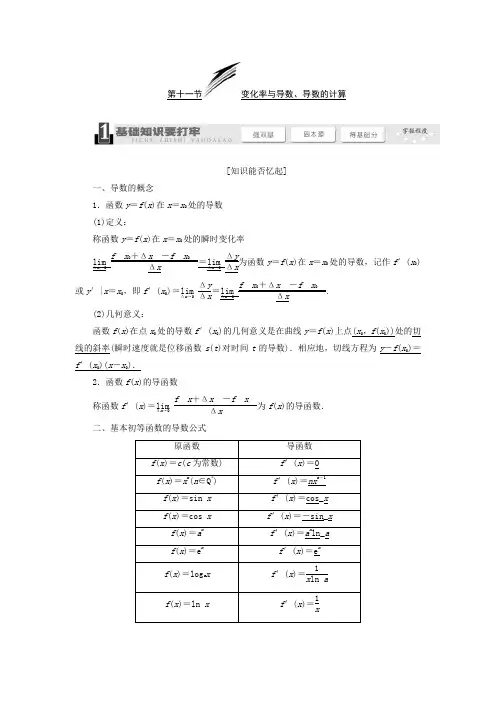 第十一节 变化率与导数、导数的计算
1 基础知识要打牢 强双基 固本源 得基础分 掌握程度
JICHU ZHISHI YAODALAO
[知识能否忆起]
一、导数的概念
1．函数 y＝f(x)在 x＝x₀处的导数
(1)定义：
称函数 y＝f(x)在 x＝x₀处的瞬时变化率
lim Δx→0 f x₀＋Δx －f x₀ / Δx ＝lim Δx→0 Δy/Δx为函数 y＝f(x)在 x＝x₀处的导数，记作 f′(x₀)
或 y′|x＝x₀，即 f′(x₀)＝lim Δx→0 Δy/Δx＝lim Δx→0 f x₀＋Δx －f x₀ / Δx．
(2)几何意义：
函数 f(x)在点 x₀处的导数 f′(x₀)的几何意义是在曲线 y＝f(x)上点(x₀，f(x₀))处的切
线的斜率(瞬时速度就是位移函数 s(t)对时间 t 的导数)．相应地，切线方程为 y－f(x₀)＝
f′(x₀)(x－x₀)．
2．函数 f(x)的导函数
称函数 f′(x)＝lim Δx→0 f x＋Δx －f x / Δx 为 f(x)的导函数．
二、基本初等函数的导数公式
原函数 导函数
f(x)＝c(c 为常数) f′(x)＝0
f(x)＝xⁿ(n∈Q*) f′(x)＝nxⁿ⁻¹
f(x)＝sin x f′(x)＝cos_x
f(x)＝cos x f′(x)＝－sin_x
f(x)＝aˣ f′(x)＝aˣln_a
f(x)＝eˣ f′(x)＝eˣ
f(x)＝logₐx f′(x)＝1/xln a
f(x)＝ln x f′(x)＝1/x